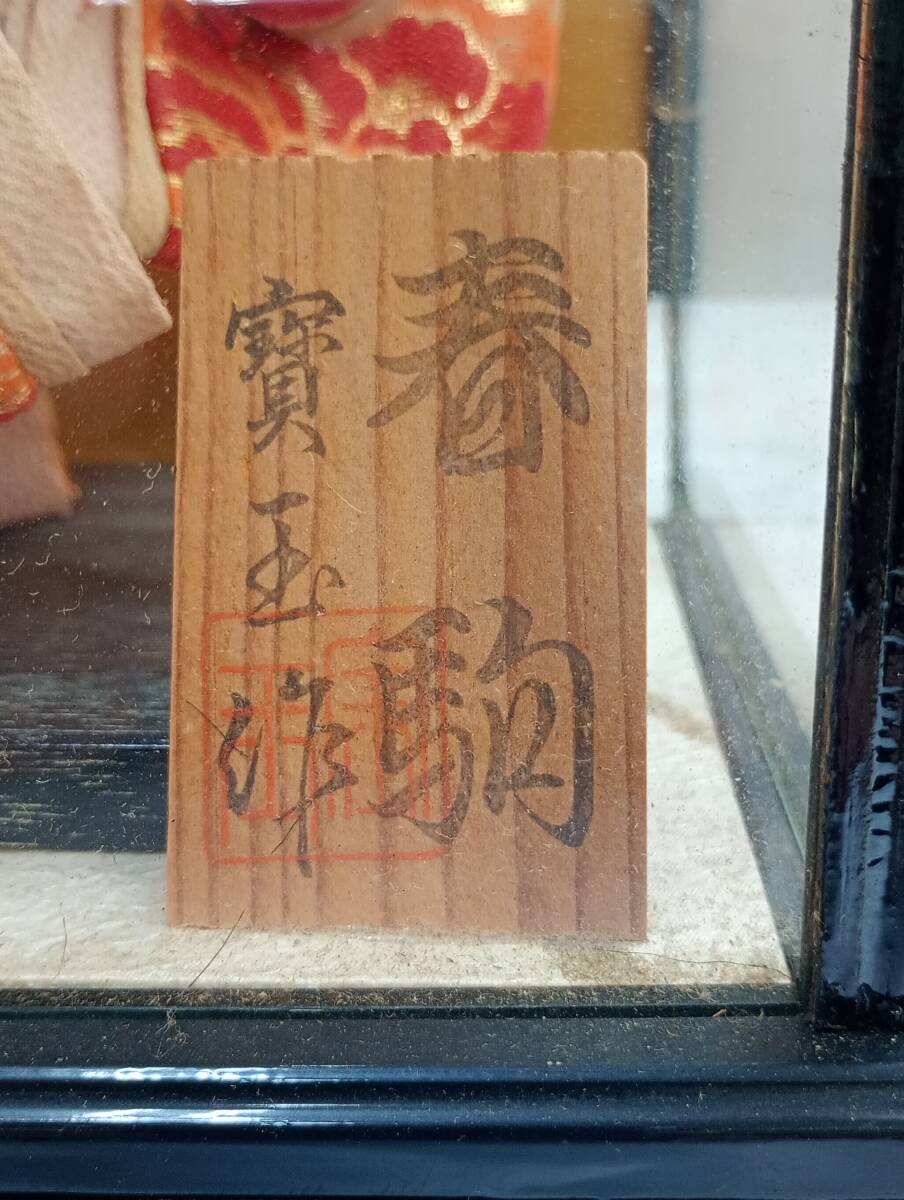 春駒
寶玉作